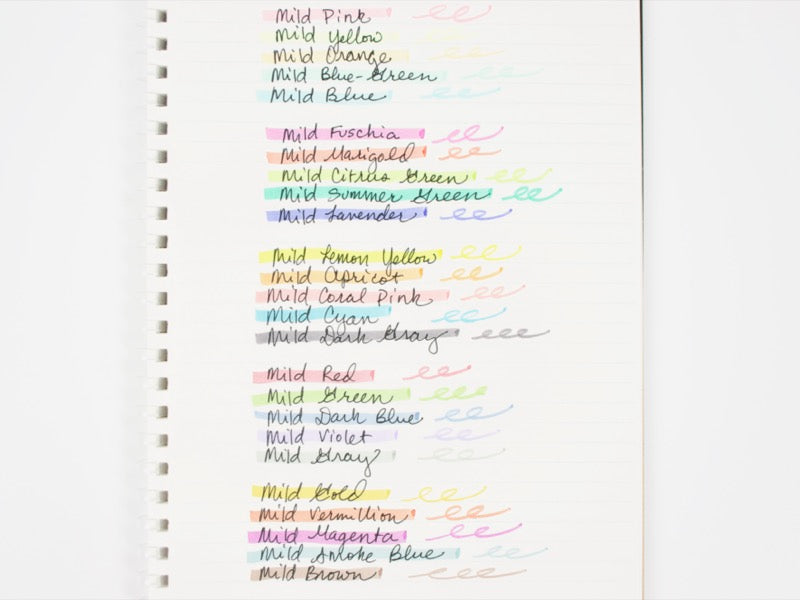 Mild Pink
Mild Yellow
Mild Orange
Mild Blue-Green
Mild Blue
Mild Fuschia
Mild Marigold
Mild Citrus Green
Mild Summer Green
Mild Lavender
Mild Lemon Yellow
Mild Apricot
Mild Coral Pink
Mild Cyan
Mild Dark Gray
Mild Red
Mild Green
Mild Dark Blue
Mild Violet
Mild Gray
Mild Gold
Mild Vermillion
Mild Magenta
Mild Smoke Blue
Mild Brown